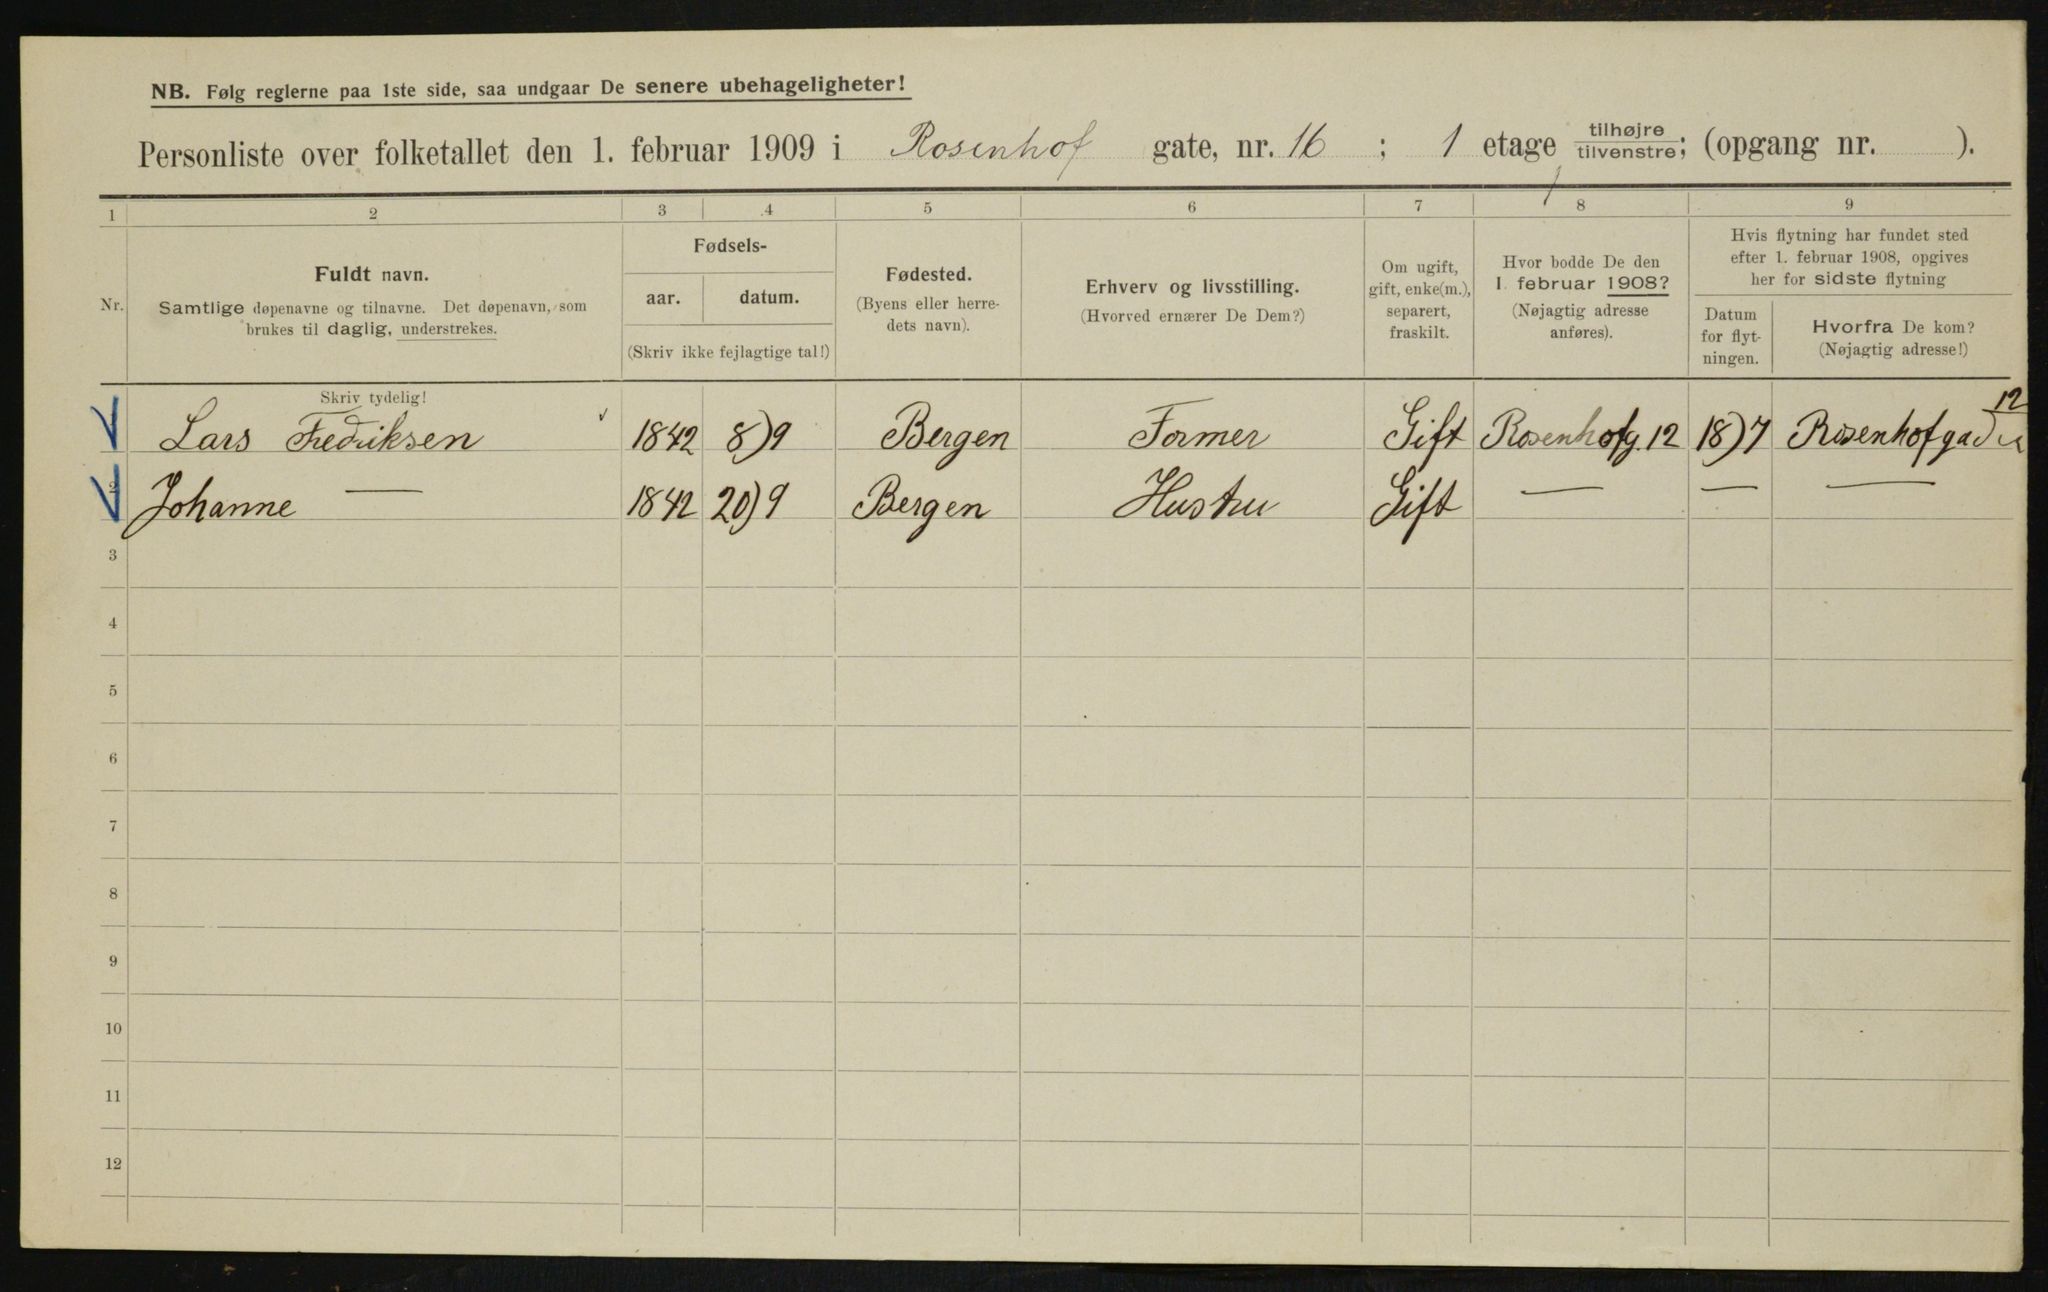 NB. Følg reglerne paa 1ste side, saa undgaar De senere ubehageligheter!
Personliste over folketallet den 1. februar 1909 i Rosenhof gate, nr. 16 ; 1 etage tilhøjre/tilvenstre; (opgang nr. ).
1 2 3 4 5 6 7 8 9
Nr.
Fuldt navn.
Samtlige døpenavne og tilnavne. Det døpenavn, som
brukes til daglig, understrekes.
Fødsels-
aar. datum.
(Skriv ikke fejlagtige tal!)
Fødested.
(Byens eller herre-
dets navn).
Erhverv og livsstilling.
(Hvorved ernærer De Dem?)
Om ugift,
gift, enke(m.),
separert,
fraskilt.
Hvor bodde De den
1. februar 1908?
(Nøjagtig adresse
anføres).
Hvis flytning har fundet sted
efter 1. februar 1908, opgives
her for sidste flytning
Datum
for flyt-
ningen.
Hvorfra De kom?
(Nøjagtig adresse!)
Skriv tydelig!
12
Lars Fredriksen 1842 8)9 Bergen Former Gift Rosenhofg. 12 18)7 Rosenhofgade
2 Johanne — 1842 20)9 Bergen Hustru Gift — — —
3
4
5
6
7
8
9
10
11
12